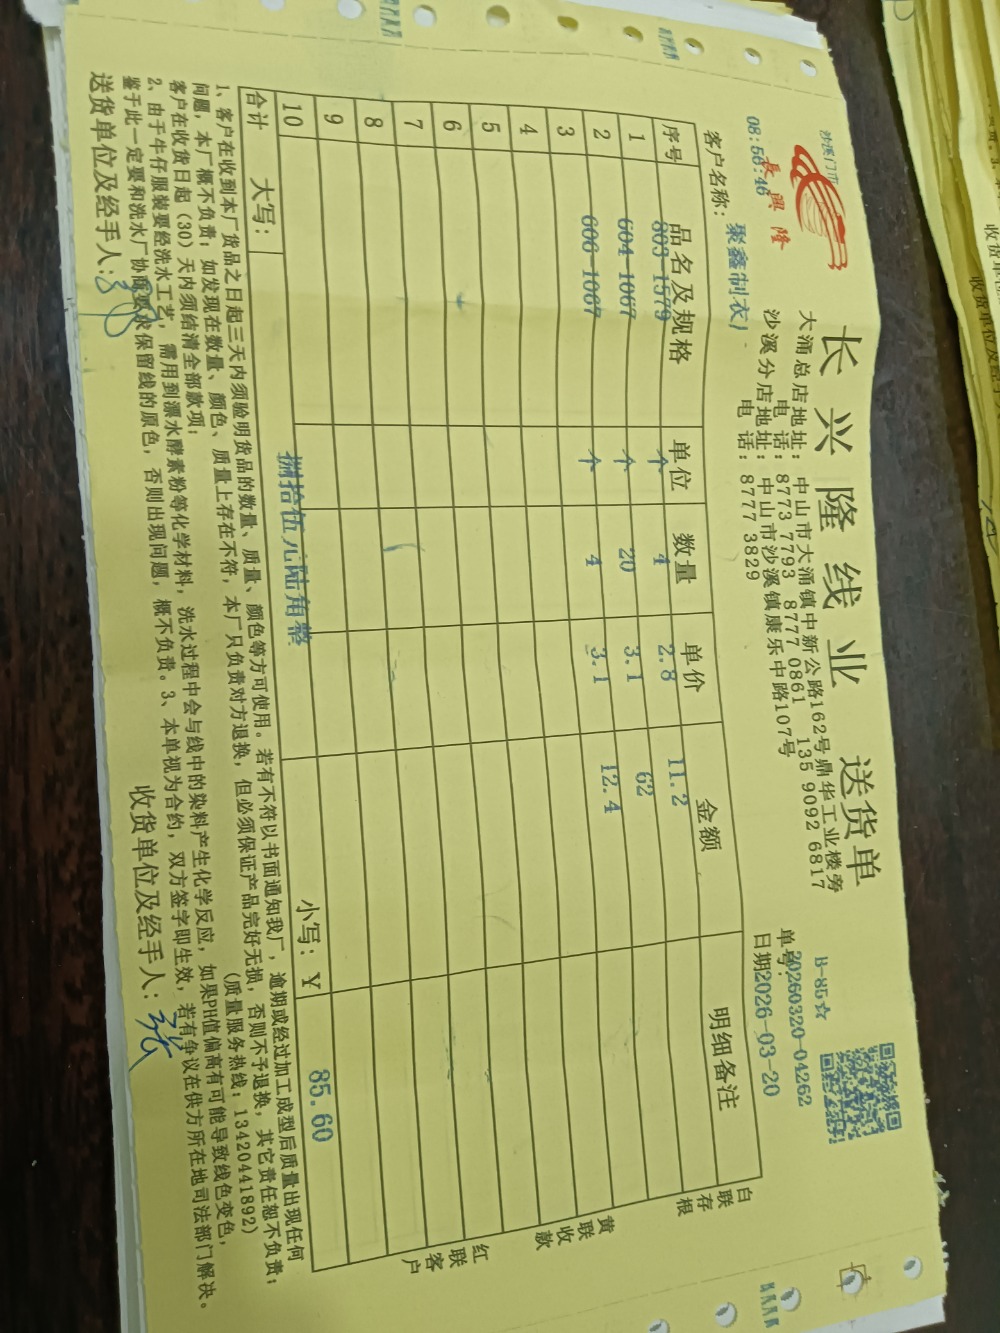 沙溪门市
長興隆
08:56:46
长兴隆线业 送货单
大涌总店地址：中山市大涌镇中新公路162号鼎华工业楼旁
电 话：8773 7793 8777 0861 135 9092 6817
沙溪分店地址：中山市沙溪镇康乐中路107号
电 话：8777 3829
B-85☆
单号：20260320-04262
日期2026-03-20
客户名称：聚鑫制衣
序号 品名及规格 单位 数量 单价 金额 明细备注
803-1579 个 4 2.8 11.2
1 604-1067 个 20 3.1 62
2 606-1067 个 4 3.1 12.4
3
4
5
6
7
8
9
10
合计 大写： 捌拾伍元陆角整 小写：￥ 85.60
白联存根
黄联收款
红联客户
1、客户在收到本厂货品之日起三天内须验明货品的数量、质量、颜色等方可使用。若有不符以书面通知我厂，逾期或经过加工成型后质量出现任何
问题，本厂概不负责；如发现在数量、颜色、质量上存在不符，本厂只负责对方退换，但必须保证产品完好无损，否则不予退换，其它责任恕不负责；
客户在收货日起（30）天内须结清全部款项； （质量服务热线：13420441892）
2、由于牛仔服装要经洗水工艺，需用到漂水酵素粉等化学材料，洗水过程中会与线中的染料产生化学反应，如果PH值偏高有可能导致线色变色，
鉴于此一定要和洗水厂协商要求保留线的原色，否则出现问题，概不负责。3、本单视为合约，双方签字即生效，若有争议在供方所在地司法部门解决。
送货单位及经手人：
收货单位及经手人：
收货单位及经手